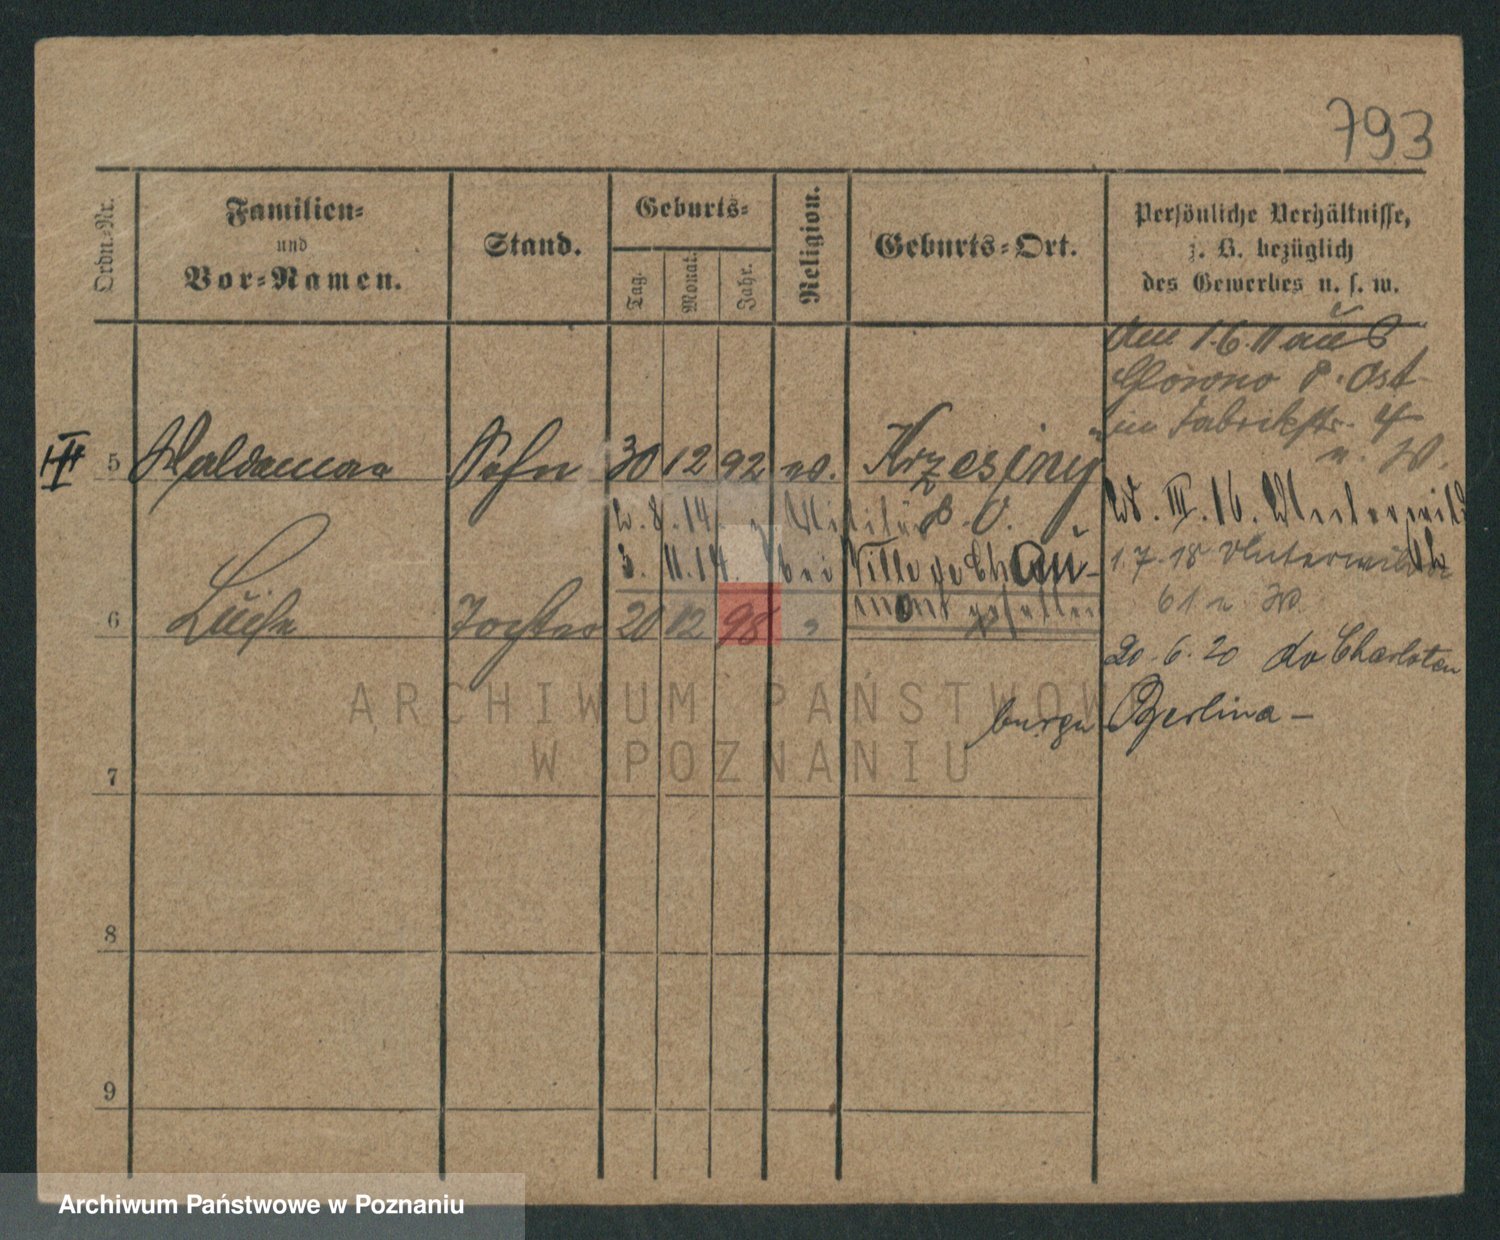 793
Ordn.-Nr.
Familien-
und
Vor-Namen.
Stand.
Geburts-
Tag.
Monat.
Jahr.
Religion.
Geburts-Ort.
Persönliche Verhältnisse,
z. B. bezüglich
des Gewerbes u. s. w.
Am 1.6.11 aus
P. Ost
in Fabrikstr. 4
n. W.
5 Waldemar Sohn 30 12 92 ev. Krzesiny
P. O.
W. III. 16.
2. 8. 14. z. Militär
3. 11. 14. bei Ville de Chau-
mont gefallen
1.7.18
61 n. W.
6 Luise Tochter 20 12 98 "
20.6.20 do Charloten
burgu Berlina –
7
8
9
ARCHIWUM PAŃSTWOW
W POZNANIU
Archiwum Państwowe w Poznaniu